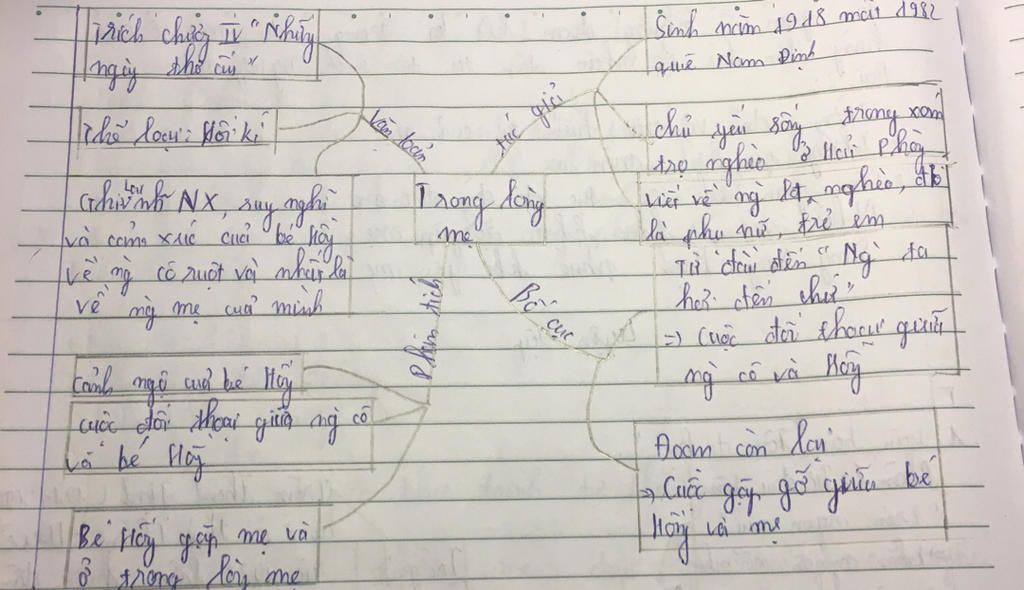 Trích chươg IV "Nhữg
ngày thơ ấu"
Thể loại: Hồi kí
Ghi lại NX, suy nghĩ
và cảm xúc của bé Hồg
về ng̀ cô ruột và nhất là
về ng̀ mẹ của mình
Văn bản
tác giả
Sinh năm 1918 mất 1982
quê Nam Định
chủ yếu sống trong xóm
trọ nghèo ở Hải Phòg
viết về ng̀ lđ nghèo, đb
là phụ nữ, trẻ em
Trong lòng
mẹ
Bố cục
Từ đầu đến "Ng̀ ta
hỏi đến chứ"
=> Cuộc đối thoại giữa
ng̀ cô và Hồg
Đoạn còn lại
=> Cuộc gặp gỡ giữa bé
Hồg và mẹ
Phân tích
Cảnh ngộ của bé Hồg
cuộc đối thoại giữa ng̀ cô
và bé Hồg
Bé Hồg gặp mẹ và
ở trong lòg mẹ